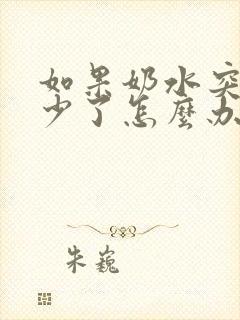 如果奶水突
少了怎麼办
朱巍